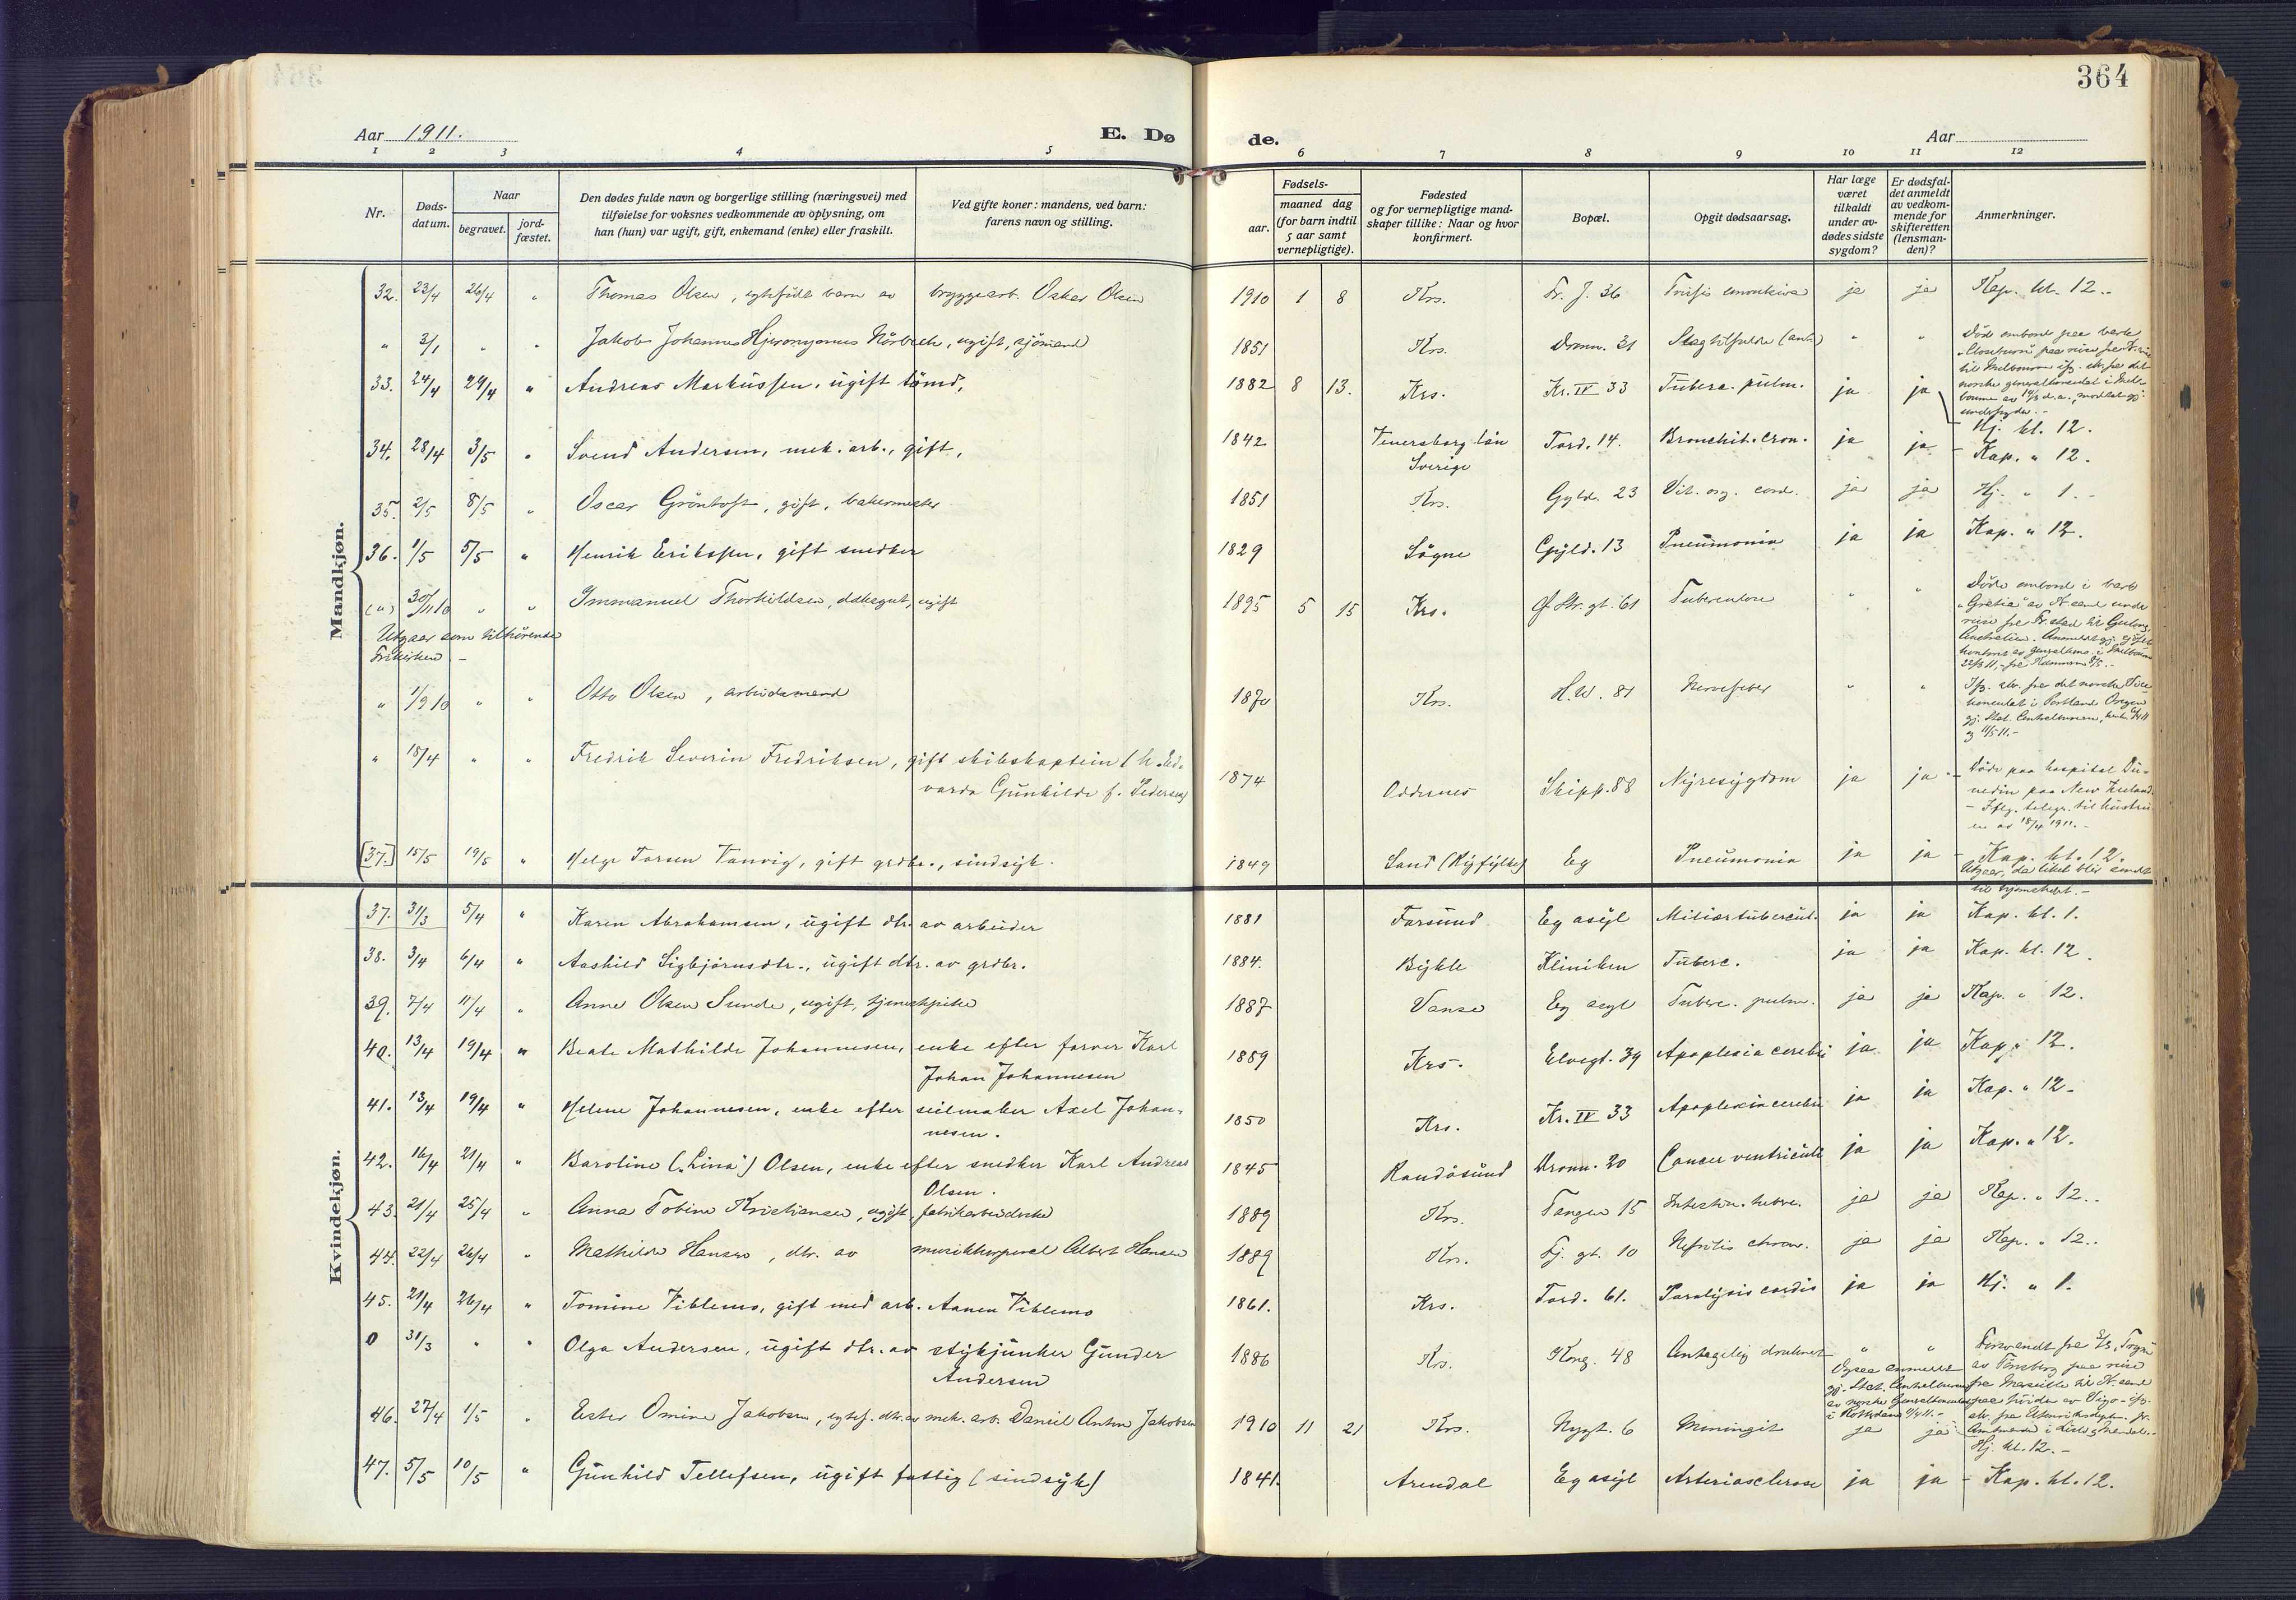 364
Aar 1911.
E. Dø
de.
Aar
1 2 3 4 5 6 7 8 9 10 11 12
Nr.
Døds-
datum.
Naar
begravet.
jord-
fæstet.
Den dødes fulde navn og borgerlige stilling (næringsvei) med
tilføielse for voksnes vedkommende av oplysning, om
han (hun) var ugift, gift, enkemand (enke) eller fraskilt.
Ved gifte koner: mandens, ved barn:
farens navn og stilling.
Fødsels-
aar.
maaned dag
(for barn indtil
5 aar samt
vernepligtige).
Fødested
og for vernepligtige mand-
skaper tillike: Naar og hvor
konfirmert.
Bopæl.
Opgit dødsaarsag.
Har læge
været
tilkaldt
under av-
dødes sidste
sygdom?
Er dødsfal-
det anmeldt
av vedkom-
mende for
skifteretten
(lensman-
den)?
Anmerkninger.
Mandkjøn.
32. 23/4 26/4 " Thomas Olsen, egtefødt barn av bryggearb. Oskar Olsen 1910 1 8 Krs. Fr. J. 36 ja ja Kap. kl. 12.
" 3/1 " " Jakob Johannes Hjeronymus Nørbech, ugift, sjømand 1851 Krs. Dronn. 31 Slagtilfælde " "
Døde ombord paa bark
33. 24/4 29/4 " Andreas Markussen, ugift tømd, 1882 8 13. Krs. Kr. IV 33 Tuberc. pulm. ja ja Hj. kl. 12.
34. 28/4 3/5 " Svend Andersen, mek. arb., gift, 1842 Venersborg län Tord. 14. Bronchit. cron. ja ja - Kap. " 12.
Sverige
35. 2/5 8/5 " Oscar Grøntoft, gift, bakermester 1851 Krs. Gyld. 23 Vit. org. cord. ja ja Hj. " 1.
36. 1/5 5/5 " Henrik Erikssen, gift snedker 1829 Søgne Gyld. 13 Pneumonia ja ja Kap. " 12.
(") 30/11 10 " " Immanuel Thorkildsen, dæksgut, ugift 1895 5 15 Krs. Ø. Str. gt. 61 Tuberculose " " Døde ombord i bark
Utgaar som tilhørende
Frikirken -
"Gratia" av K.sand unde
reise fra Fr.stad til Geelong,
" 1/9 10 " " Otto Olsen, arbeidsmand 1870 Krs. H. W. 81 Nervefeber " " Ifg. skr. fra det norske Vice
konsulat i Portland Oregon
" 15/4 " " Fredrik Severin Fredriksen, gift skibskaptein (h. Ed-
varda Gunhilde f. Pedersen) 1874 Oddernes Skipp. 88 Nyresygdom ja ja - Døde paa hospital Du-
nedin paa New Zeeland.
- Iflg. telegr. til hustru
en av 18/4 1911. -
[37.] 15/5 19/5 " Helge Torsen Vanvig, gift grdbr., sindsyk. 1849 Sand (Ryfylke) Eg Pneumonia ja ja - Kap. kl. 12.
Utgaar, da liket blir sendt
til hjemstedet. -
Kvindekjøn.
37. 31/3 5/4 " Karen Abrahamsen, ugift dtr. av arbeider 1881 Farsund Eg asyl Miliærtubercul. ja ja Kap. kl. 1.
38. 3/4 6/4 " Aashild Sigbjørnsdtr., ugift dtr. av grdbr. 1884. Bykle Kliniken Tuberc. ja ja Kap. kl. 12.
39. 7/4 11/4 " Anne Olsen Sunde, ugift, tjenestepike 1887 Vanse Eg asyl Tuberc. pulm. ja ja Kap. " 12.
40. 13/4 19/4 " Beate Mathilde Johannesen, enke efter farver Karl
Johan Johannesen 1859 Krs. Elvegt. 39 Apoplexia cerebri ja ja Kap. " 12.
41. 13/4 19/4 " Helene Johannesen, enke efter seilmaker Axel Johan-
nesen. 1850 Krs. Kr. IV 33 Apoplexia cerebri ja ja Kap. " 12.
42. 16/4 21/4 " Baroline ("Lina") Olsen, enke efter snedker Karl Andreas
Olsen. 1845 Randøsund Dronn. 20 Cancer ventriculi ja ja Kap. " 12.
43. 21/4 25/4 " Anna Tobine Kristiansen, ugift, fabrikarbeiderske 1889 Krs. Tangen 15 Intestin. tuberc. ja ja Kap. " 12.
44. 22/4 26/4 " Mathilde Hansen, dtr. av musikkorporal Albert Hansen 1889 Krs. Fj. gt. 10 Nefritis chron. ja ja Kap. " 12.
45. 21/4 26/4 " Tomine Viblemo, gift med arb. Aanen Viblemo 1861. Krs. Tord. 61. Paralysis cordis ja ja Hj. " 1.
0 31/3 " " Olga Andersen, ugift dtr. av stykjunker Gunder
Andersen 1886 Krs. Kong. 48 Antagelig druknet " " Forsvandt fra
av Tønsberg paa reise
fra Marseille til K.sand
46. 27/4 1/5 " Ester Omine Jakobsen, egtef. dtr. av mek. arb. Daniel Anton Jakobsen 1910 11 21 Krs. Nygt. 6 Meningit ja ja
Hj. kl. 12. -
47. 5/5 10/5 " Gunhild Tellefsen, ugift fattig (sindsyk) 1841. Arendal Eg asyl Arteriosclerose ja ja - Kap. kl. 12.